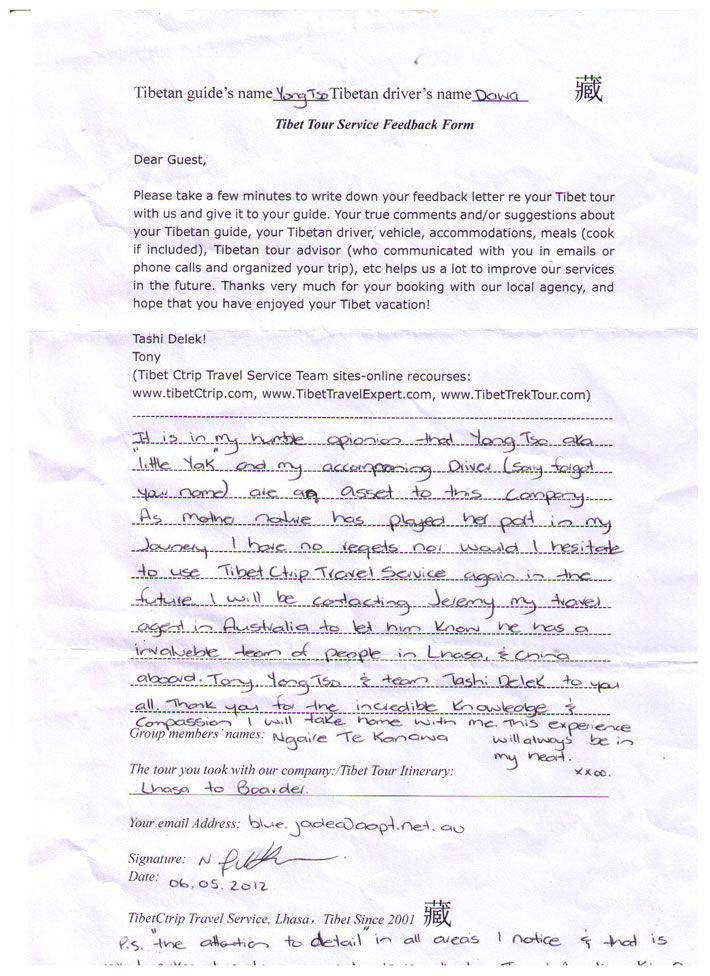 Tibetan guide's name Yong Tso Tibetan driver's name Dawa 藏
Tibet Tour Service Feedback Form
Dear Guest,
Please take a few minutes to write down your feedback letter re your Tibet tour
with us and give it to your guide. Your true comments and/or suggestions about
your Tibetan guide, your Tibetan driver, vehicle, accommodations, meals (cook
if included), Tibetan tour advisor (who communicated with you in emails or
phone calls and organized your trip), etc helps us a lot to improve our services
in the future. Thanks very much for your booking with our local agency, and
hope that you have enjoyed your Tibet vacation!
Tashi Delek!
Tony
(Tibet Ctrip Travel Service Team sites-online recourses:
www.tibetCtrip.com, www.TibetTravelExpert.com, www.TibetTrekTour.com)
It is in my humble opionion that Yong Tso aka
"little Yak" and my accompaning Driver (sorry forgot
your name) are an asset to this Company.
As mother nature has played her part in my
Jounery I have no regets nor would I hesitate
to use Tibet Ctrip Travel Service again in the
future I will be contacting Jeremy my travel
agent in Australia to let him know he has a
invaluable team of people in Lhasa, & china
aboard. Tony, Yong Tso & team Tashi Delek to you
all. Thank you for the incredible Knowledge &
Compassion I will take home with me. This experience
Group members' names: Ngaire Te Kanawa will always be in
my heart.
The tour you took with our company:/Tibet Tour Itinerary: xxoo.
Lhasa to Boarder.
Your email Address: blue.jade@aapt.net.au
Signature: N
Date: 06.05.2012
TibetCtrip Travel Service, Lhasa, Tibet Since 2001 藏
P.s. "the attention to detail" in all areas I notice & that is